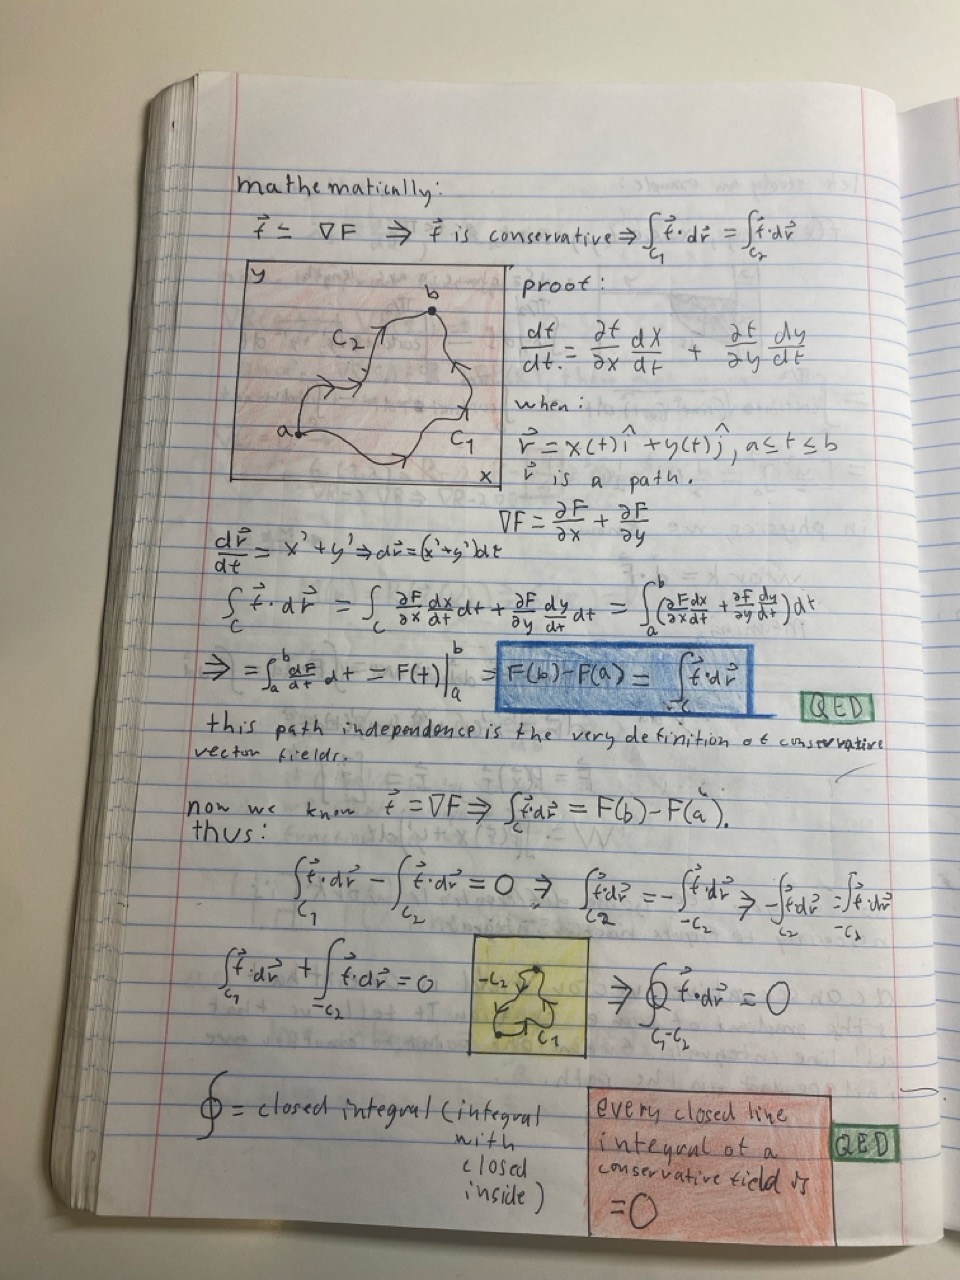 mathematically:
f⃗ = ∇F ⇒ f⃗ is conservative ⇒ ∫_C₁ f⃗·dr⃗ = ∫_C₂ f⃗·dr⃗
y
b
C₂
a
C₁
x
proof:
df/dt = ∂f/∂x dx/dt + ∂f/∂y dy/dt
when:
r⃗ = x(t)î + y(t)ĵ, a ≤ t ≤ b
r⃗ is a path.
∇F = ∂F/∂x + ∂F/∂y
dr⃗/dt = x' + y' ⇒ dr⃗ = (x' + y')dt
∫_C f⃗·dr⃗ = ∫_C ∂F/∂x dx/dt dt + ∂F/∂y dy/dt dt = ∫_a^b (∂F/∂x dx/dt + ∂F/∂y dy/dt) dt
⇒ = ∫_a^b dF/dt dt = F(t)|_a^b = F(b) - F(a) = ∫_C f⃗·dr⃗
QED
this path independence is the very definition of conservative
vector fields.
now we know f⃗ = ∇F ⇒ ∫_C f⃗·dr⃗ = F(b) - F(a).
thus:
∫_C₁ f⃗·dr⃗ - ∫_C₂ f⃗·dr⃗ = 0 ⇒ ∫_C₂ f⃗·dr⃗ = -∫_-C₂ f⃗·dr⃗ ⇒ -∫_C₂ f⃗·dr⃗ = ∫_-C₂ f⃗·dr⃗
∫_C₁ f⃗·dr⃗ + ∫_-C₂ f⃗·dr⃗ = 0
-C₂
C₁
⇒ ∮_C₁-C₂ f⃗·dr⃗ = 0
∮ = closed integral (integral
with
closed
inside)
every closed line
integral of a
conservative field is
= 0
QED